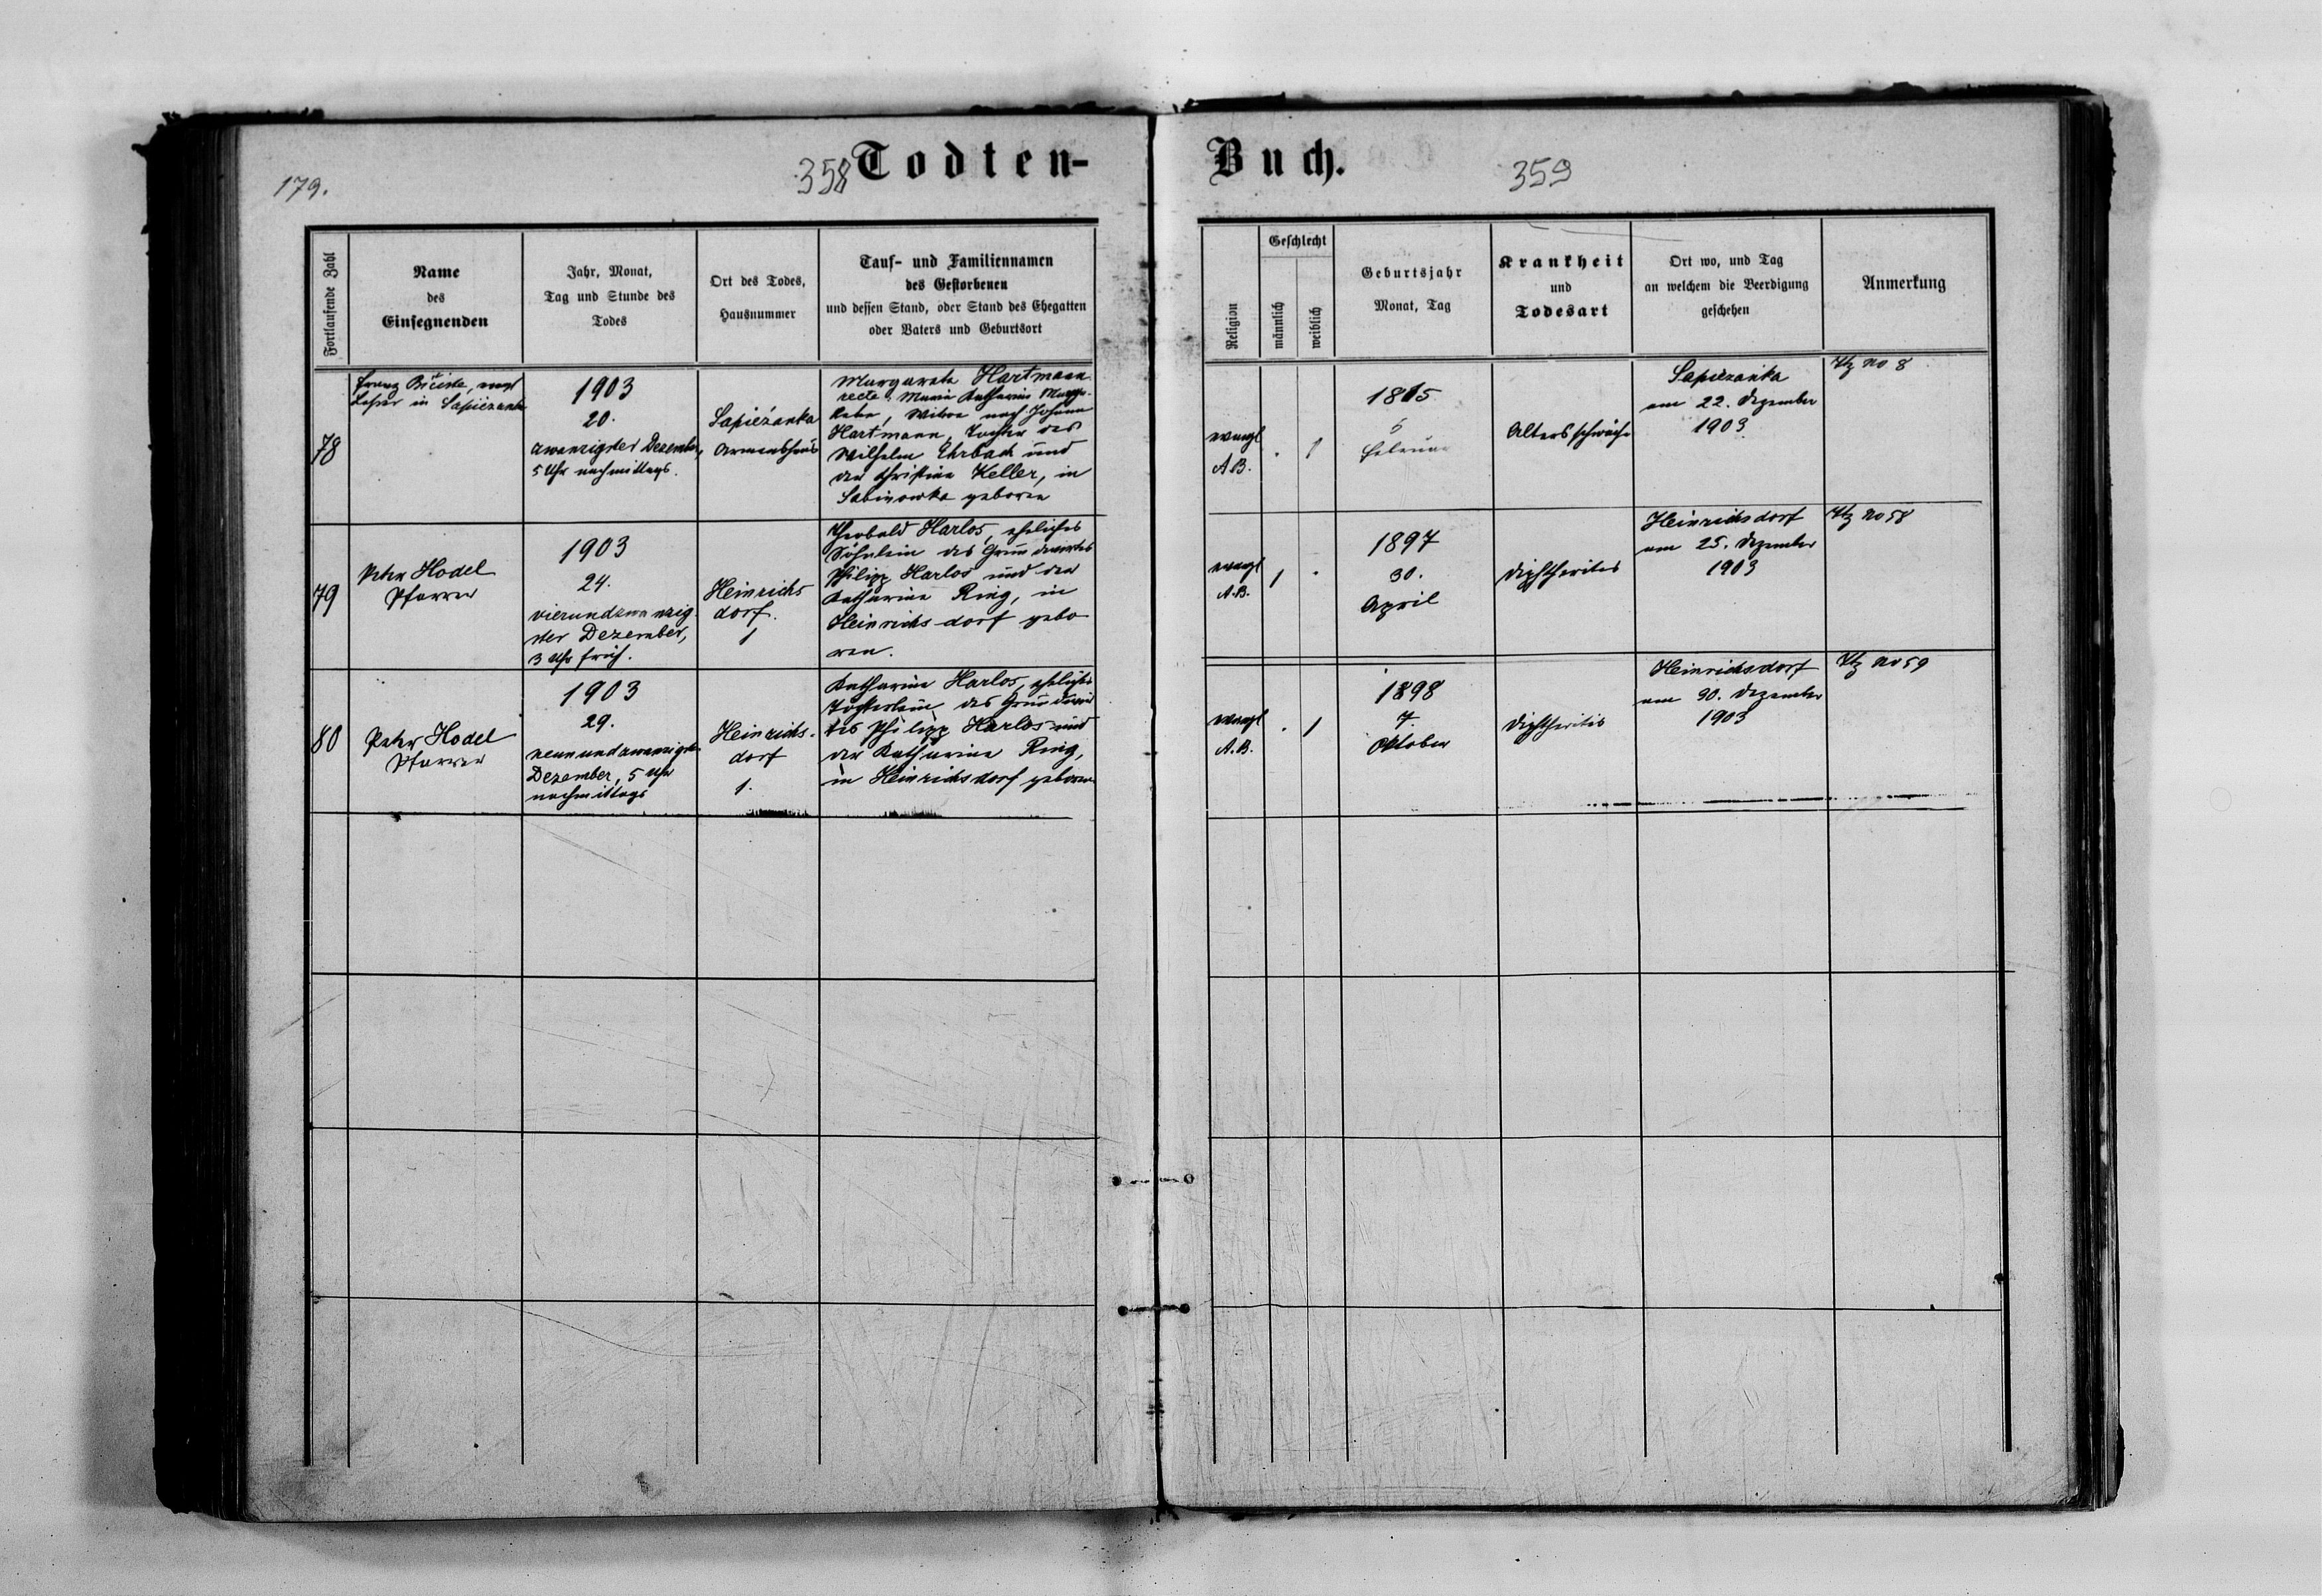 179.
358 Todten-
Buch. 359
Fortlaufende Zahl
Name
des
Einsegnenden
Jahr, Monat,
Tag und Stunde des
Todes
Ort des Todes,
Hausnummer
Tauf- und Familiennamen
des Gestorbenen
und dessen Stand, oder Stand des Ehegatten
oder Vaters und Geburtsort
Religion
Geschlecht
männlich
weiblich
Geburtsjahr
Monat, Tag
Krankheit
und
Todesart
Ort wo, und Tag
an welchem die Beerdigung
geschehen
Anmerkung
78
Franz
Lehrer in Sapieżanka
1903
20.
zwanzigster Dezember,
5 Uhr nachmittags.
Sapieżanka
Armenhaus
Margareta Hartmann
recte: Maria Katharina Marga-
reta, Witwe nach Johann
Hartmann, Tochter des
Wilhelm Ehrbach und
der Christine Keller, in
Sabinowka geboren
evangl
A.B.
. 1
1815
5
Februar
Altersschwäche
Sapieżanka
am 22. Dezember
1903
No 8
79
Peter Hodel
Pfarrer
1903
24.
vierundzwanzig-
ster Dezember,
3 Uhr früh.
Heinrichs
dorf.
1
Theobald Harlos, eheliches
Söhnlein des Grundwirtes
Philipp Harlos und der
Katharina Ring, in
Heinrichsdorf gebo
ren.
evangl
A.B.
1 .
1897
30.
April
Diphtheritis
Heinrichsdorf
am 25. Dezember
1903
No 58
80
Peter Hodel
Pfarrer
1903
29.
neunundzwanzigster
Dezember, 5 Uhr
nachmittags
Heinrichs-
dorf
1.
Katharina Harlos, eheliches
Töchterlein des Grundwir
tes Philipp Harlos und
der Katharina Ring,
in Heinrichsdorf geboren
evangl
A.B.
. 1
1898
7.
Oktober
Diphtheritis
Heinrichsdorf
am 30. Dezember
1903
No 59